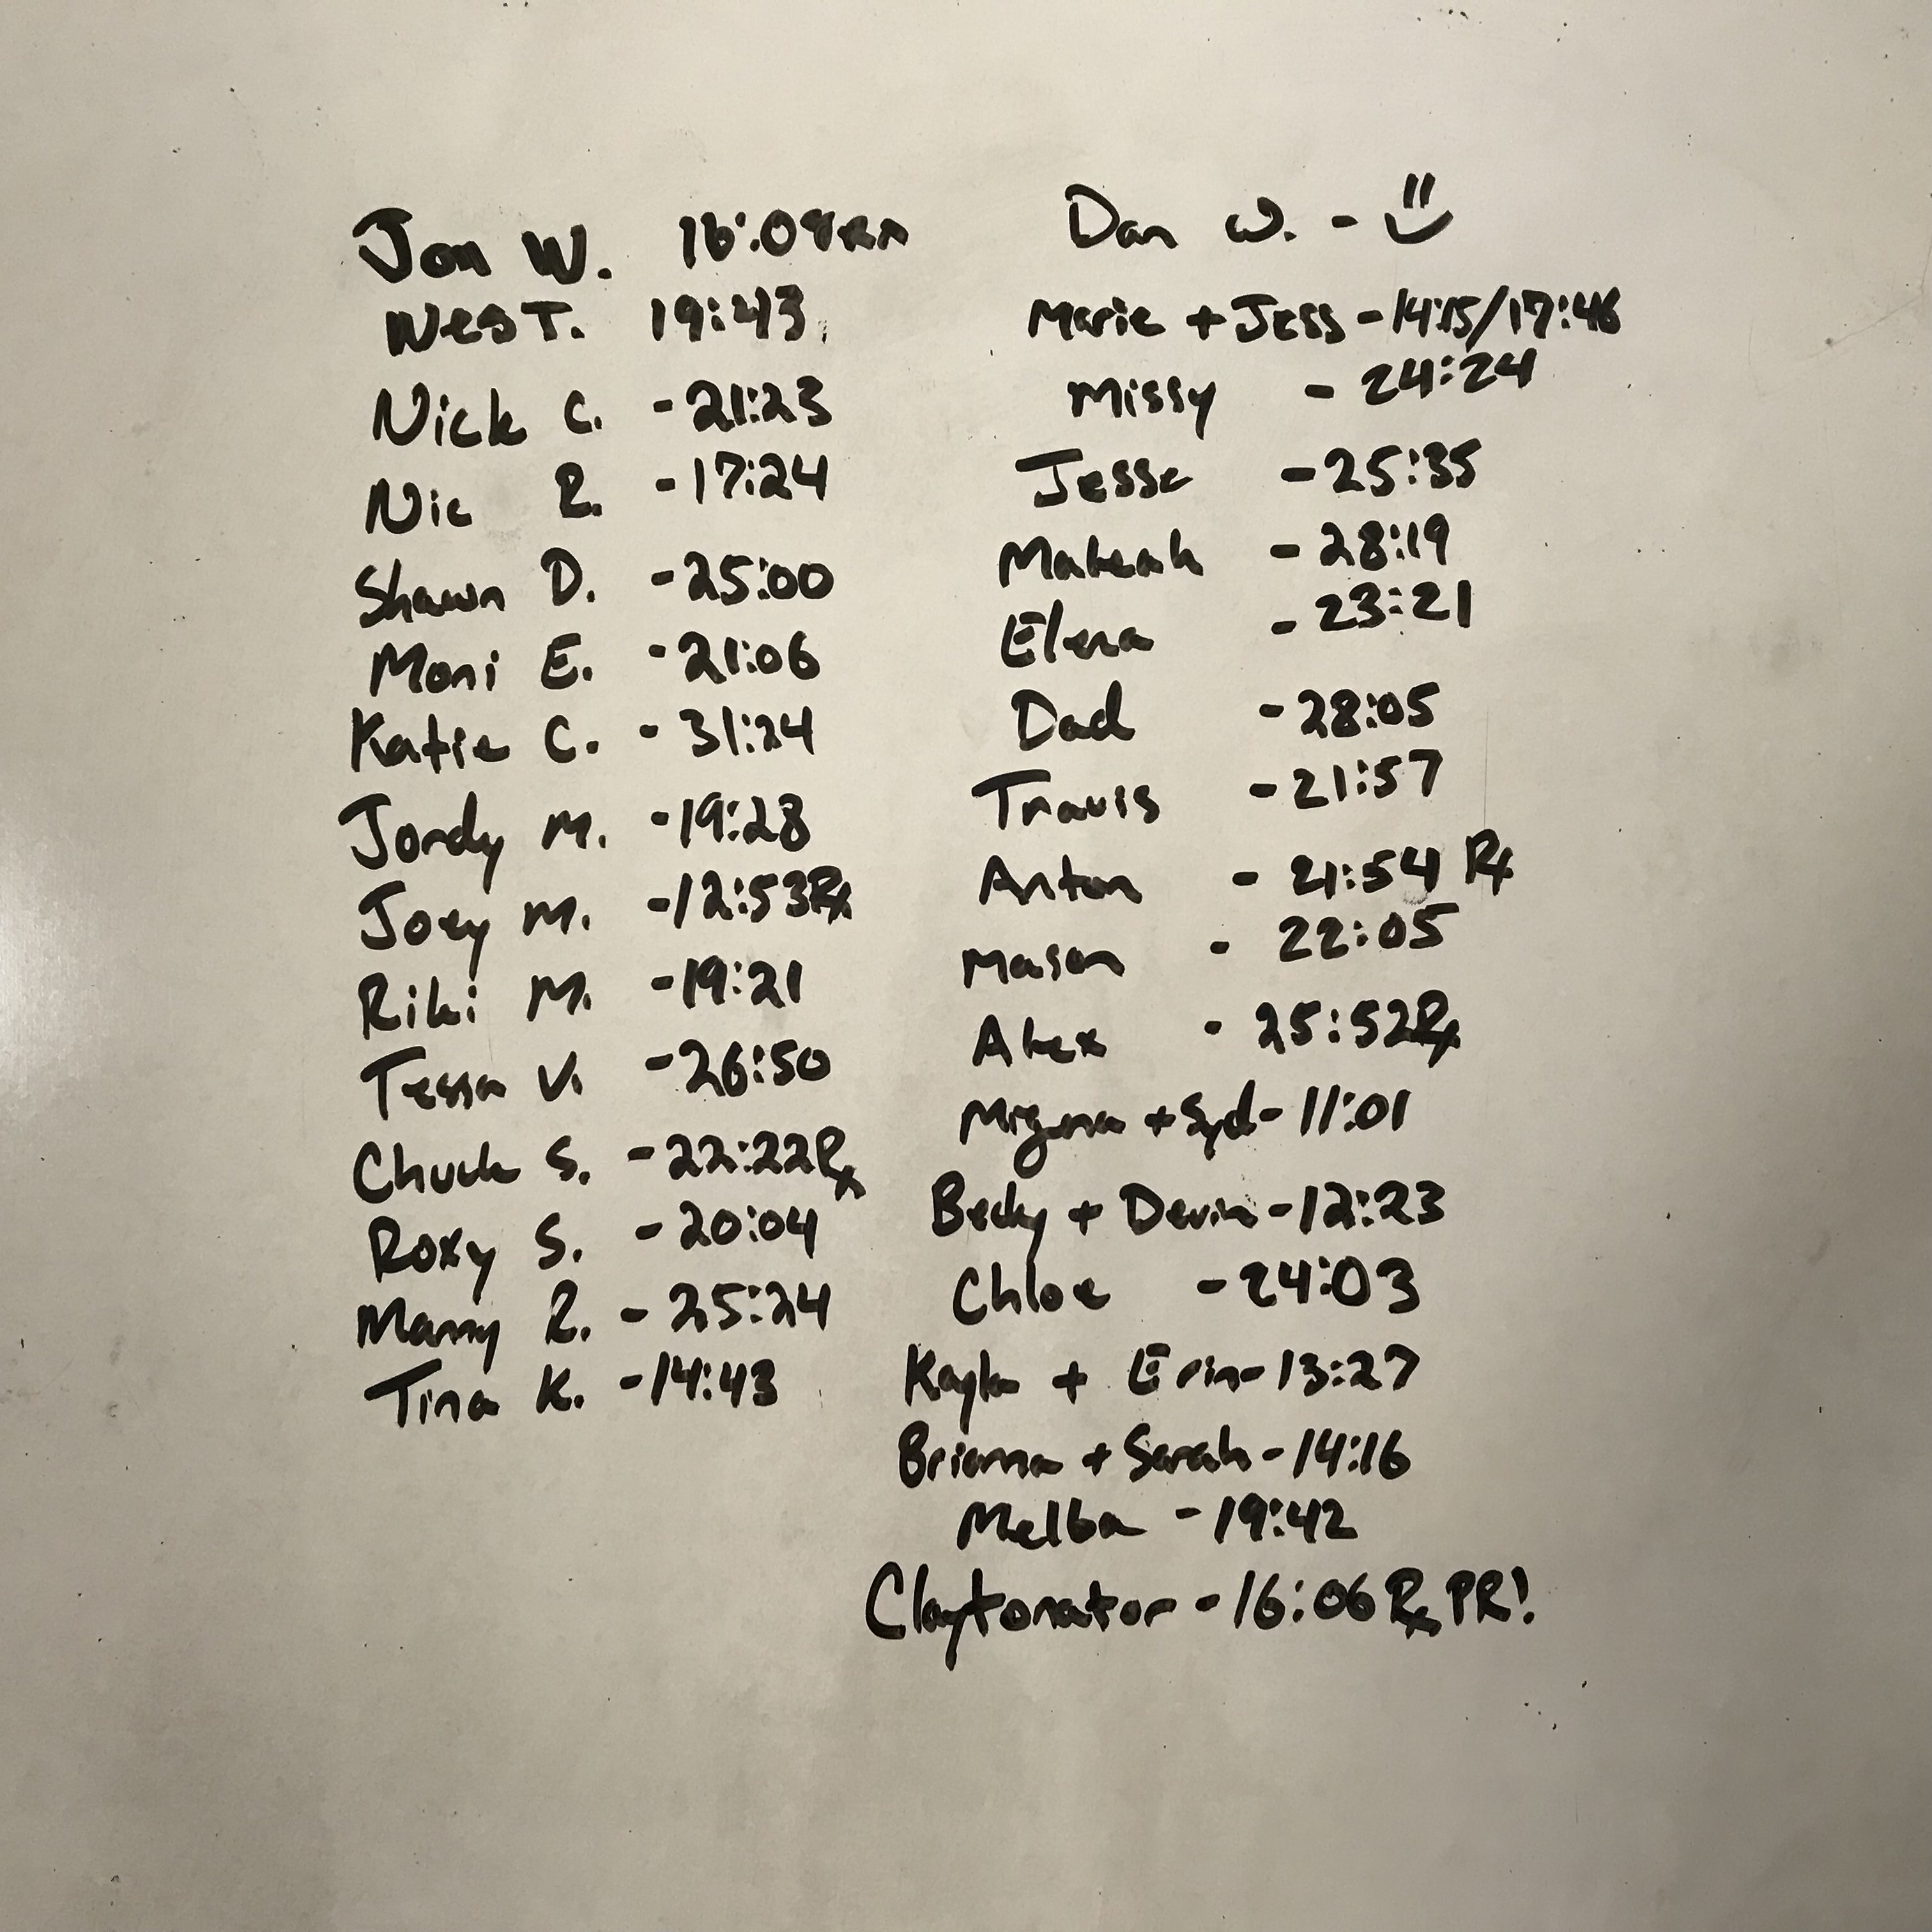 Jon W. 16:08
Wes T. 19:43
Nick C. - 21:23
Nic R. - 17:24
Shawn D. - 25:00
Moni E. - 21:06
Katie C. - 31:24
Jordy M. - 19:28
Joey M. - 12:53 Rx
Riki M. - 19:21
Tessa V. - 26:50
Chuck S. - 22:22 Rx
Roxy S. - 20:04
Manny R. - 25:24
Tina K. - 14:43
Dan W. - 
Marie + Jess - 14:15/17:46
Missy - 24:24
Jesse - 25:35
Makeah - 28:19
Elena - 23:21
Dad - 28:05
Travis - 21:57
Anton - 21:54 Rx
Mason - 22:05
Alex - 25:52 Rx
+ Syd - 11:01
Becky + Devin - 12:23
Chloe - 24:03
Kayla + Erin - 13:27
Brianna + Sarah - 14:16
Melba - 19:42
Claytonator - 16:06 Rx PR!